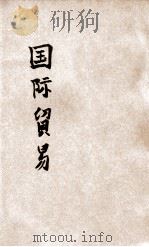 国际貿易
mtoou.info